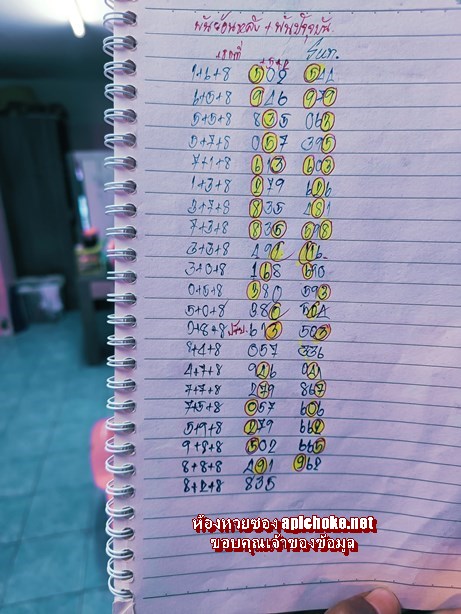 พันย้อนหลัง + พันปัจจุบัน
1+6+8 509 544
6+5+8 946 979
5+5+8 835 063
5+7+8 057 395
7+1+8 613 603
1+3+8 279 626
3+7+8 835 481
7+3+8 835 598
3+3+8 491 116
3+0+8 168 690
0+5+8 380 593
5+0+8 386 564
0+8+8 613 503
8+4+8 057 336
4+7+8 946 041
7+7+8 279 867
7+5+8 057 606
5+9+8 279 662
9+8+8 502 665
8+8+8 491 968
8+2+8 835
ห้องหวยซอง apichoke.net
ขอบคุณเจ้าของข้อมูล